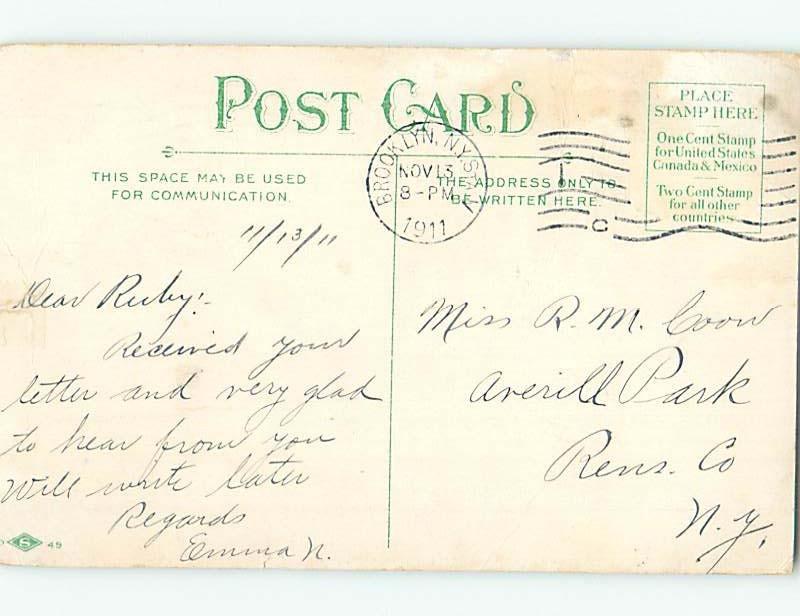 POST CARD
THIS SPACE MAY BE USED
FOR COMMUNICATION.
THE ADDRESS ONLY TO
BE WRITTEN HERE.
PLACE
STAMP HERE
One Cent Stamp
for United States
Canada & Mexico
Two Cent Stamp
for all other
countries
BROOKLYN, N.Y.
NOV 13
8-PM
1911
C
11/13/11
Dear Ruby!-
Received your
letter and very glad
to hear from you
Will write later
Regards
Emma N.
Miss R. M. Coon
Averill Park
Rens. Co
N. Y.
S 49